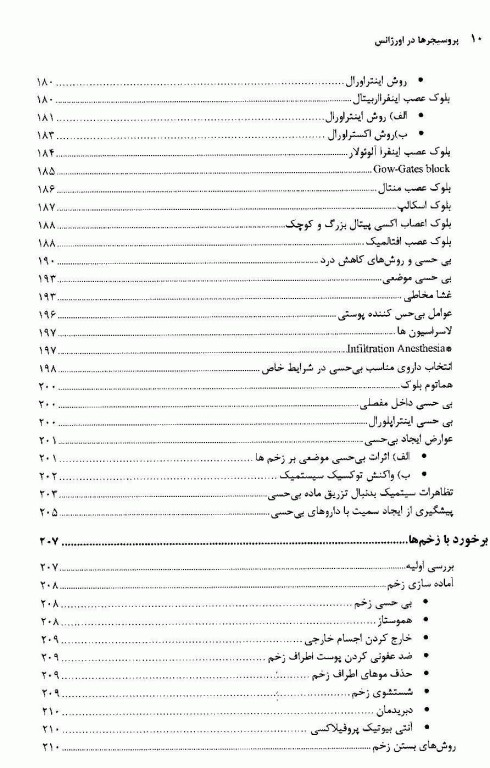 ۱۰ پروسیجرها در اورژانس
• روش اینتراورال ........ ۱۸۰
بلوک عصب اینفرااربیتال ........ ۱۸۰
• الف) روش اینتراورال ........ ۱۸۱
• ب)روش اکستراورال ........ ۱۸۳
بلوک عصب اینفرا آلوئولار ........ ۱۸۴
Gow-Gates block ........ ۱۸۵
بلوک عصب منتال ........ ۱۸۶
بلوک اسکالپ ........ ۱۸۷
بلوک اعصاب اکسی پیتال بزرگ و کوچک ........ ۱۸۸
بلوک عصب افتالمیک ........ ۱۸۸
بی حسی و روش‌های کاهش درد ........ ۱۹۰
بی حسی موضعی ........ ۱۹۳
غشا مخاطی ........ ۱۹۳
عوامل بی‌حس کننده پوستی ........ ۱۹۶
لاسراسیون ها ........ ۱۹۷
Infiltration Anesthesia* ........ ۱۹۷
انتخاب داروی مناسب بی‌حسی در شرایط خاص ........ ۱۹۸
هماتوم بلوک ........ ۲۰۰
بی حسی داخل مفصلی ........ ۲۰۰
بی حسی اینتراپلورال ........ ۲۰۰
عوارض ایجاد بی‌حسی ........ ۲۰۱
• الف) اثرات بی‌حسی موضعی بر زخم ها ........ ۲۰۱
• ب) واکنش توکسیک سیستمیک ........ ۲۰۲
تظاهرات سیتمیک بدنبال تزریق ماده بی‌حسی ........ ۲۰۳
پیشگیری از ایجاد سمیت با داروهای بی‌حسی ........ ۲۰۵
برخورد با زخم‌ها ........ ۲۰۷
بررسی اولیه ........ ۲۰۷
آماده سازی زخم ........ ۲۰۸
• بی حسی زخم ........ ۲۰۸
• هموستاز ........ ۲۰۸
• خارج کردن اجسام خارجی ........ ۲۰۹
• ضد عفونی کردن پوست اطراف زخم ........ ۲۰۹
• حذف موهای اطراف زخم ........ ۲۰۹
• شستشوی زخم ........ ۲۰۹
• دبریدمان ........ ۲۱۰
• آنتی بیوتیک پروفیلاکسی ........ ۲۱۰
روش‌های بستن زخم ........ ۲۱۰